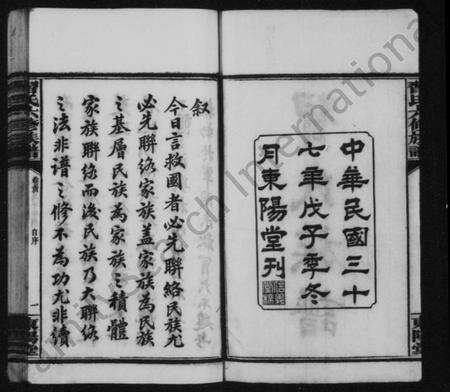 曾氏六修族譜
中華民國三十
七年戊子季冬
月東陽堂刊
東陽堂
敘
今日言救國者必先聯絡民族尤
必先聯絡家族蓋家族為民族
之基層民族為家族之積體
家族聯絡而後民族乃大聯絡
之法非譜之修不為功尤非續
卷首
自序
一
東陽堂